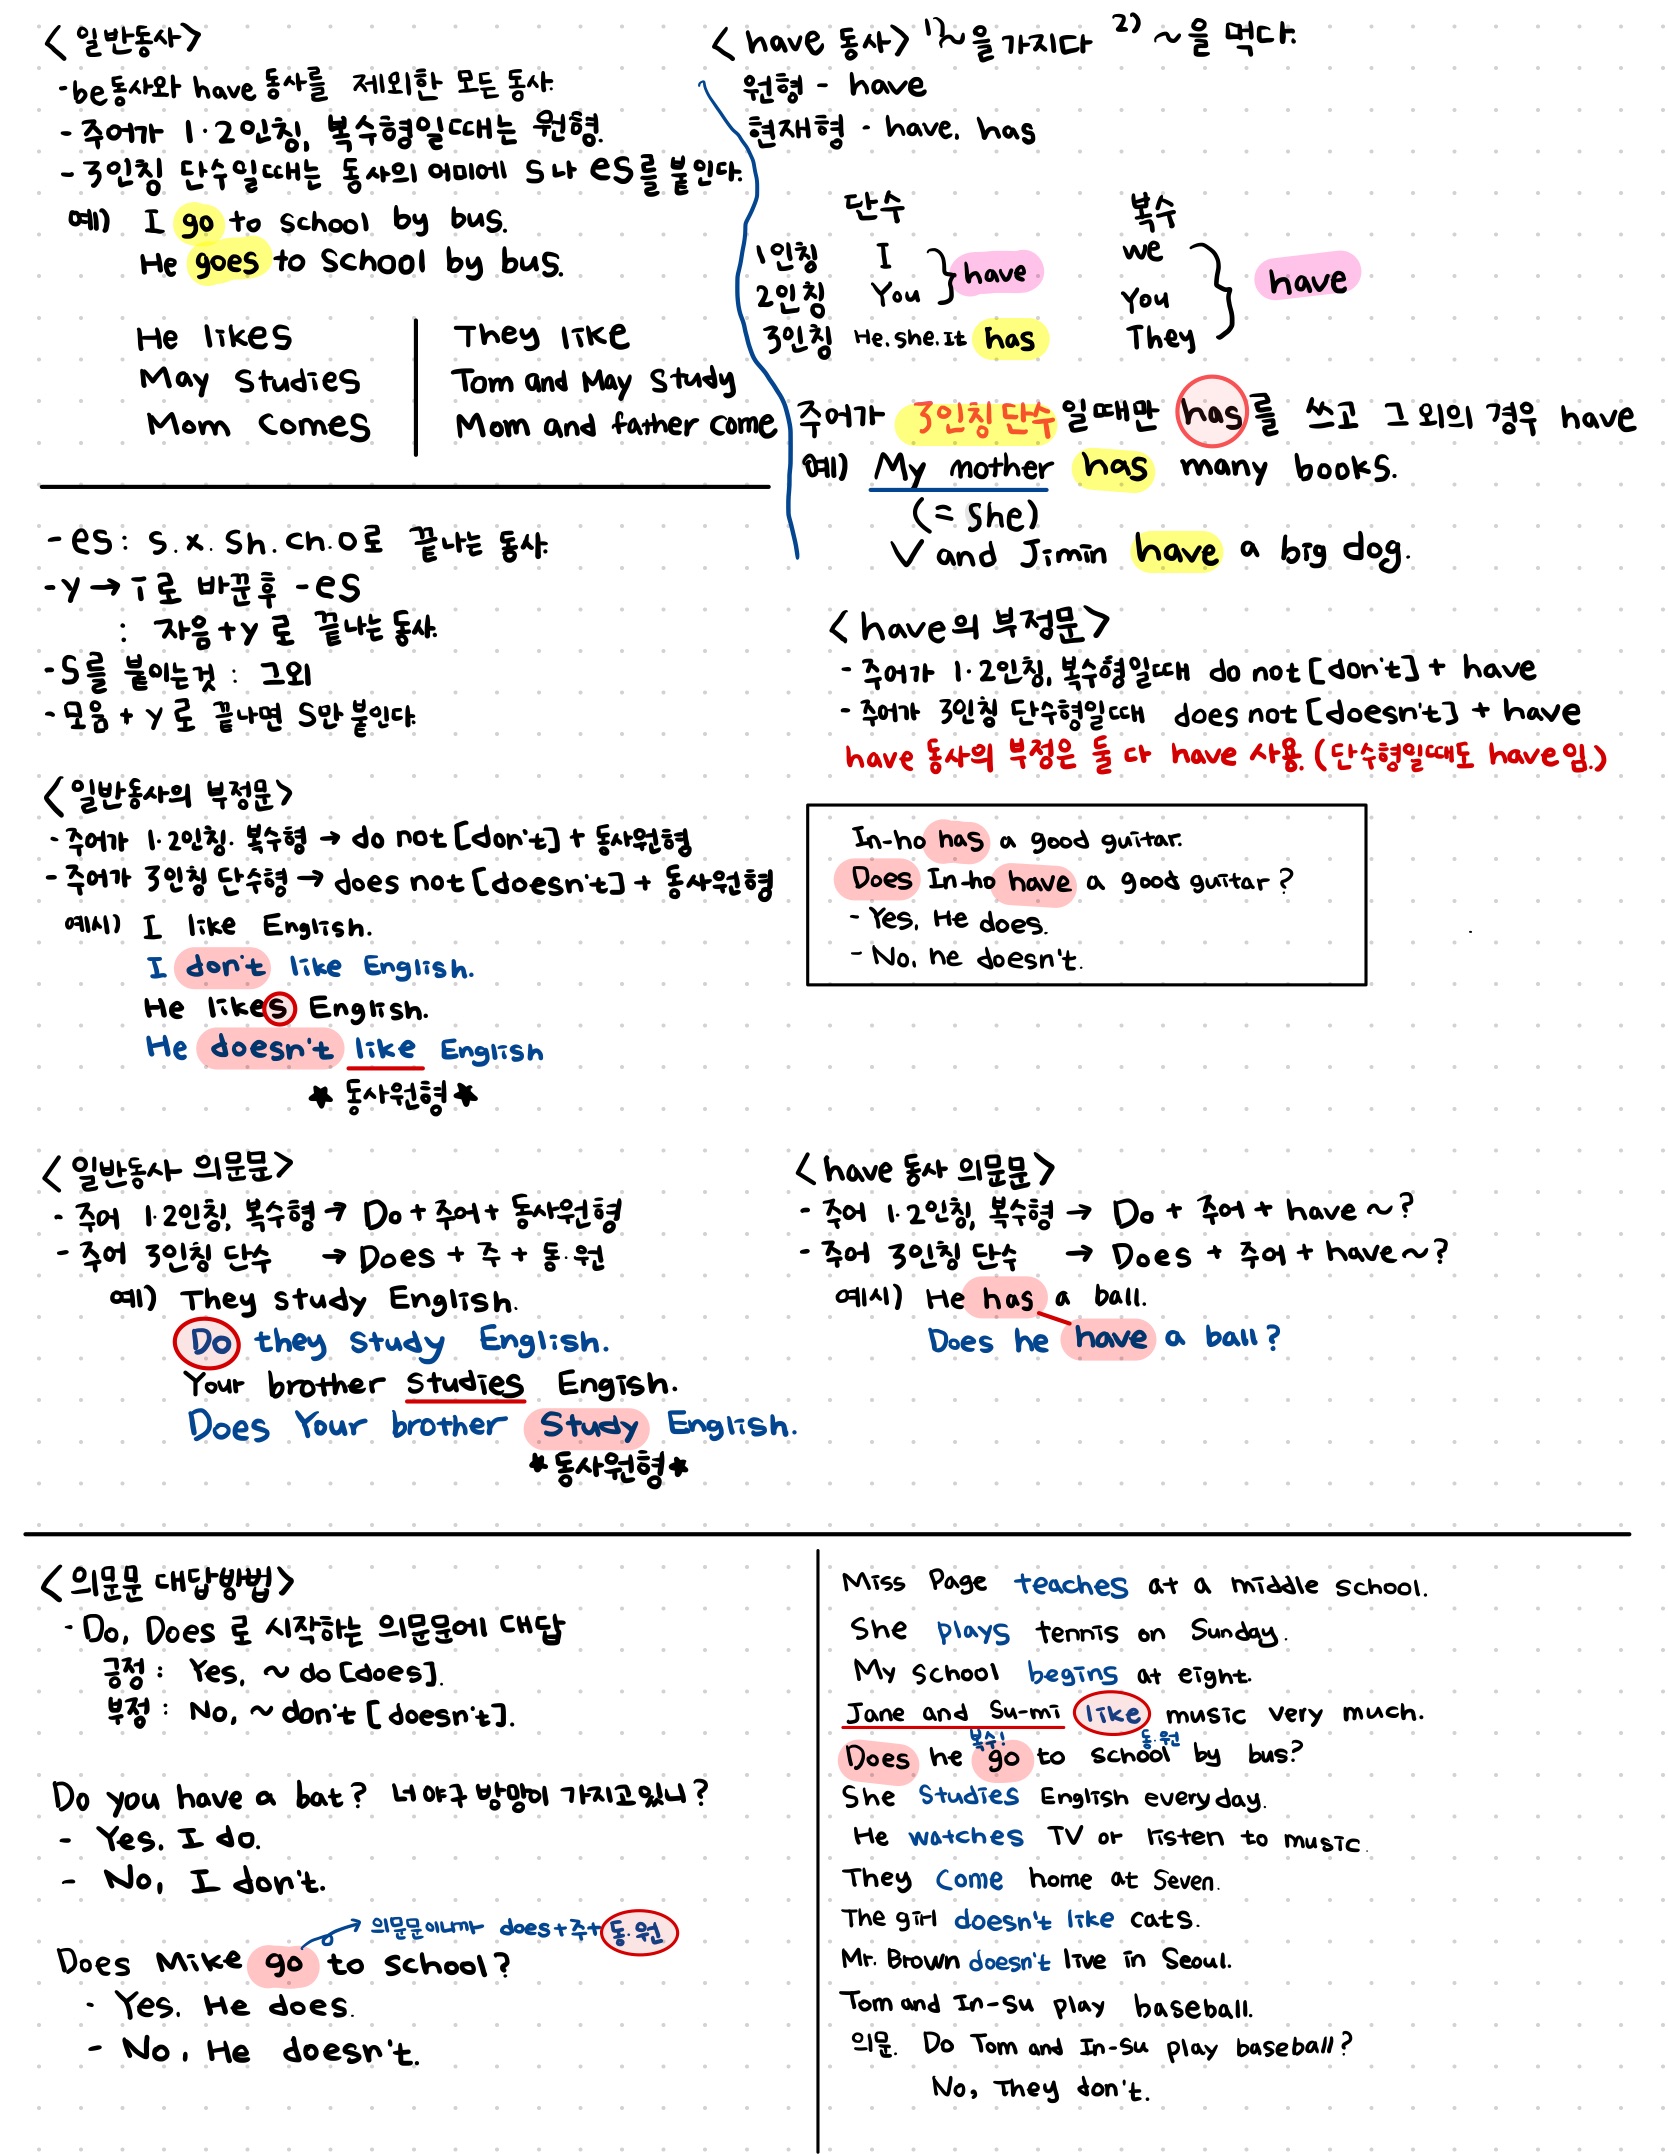 <일반동사>
- be동사와 have 동사를 제외한 모든 동사.
- 주어가 1·2인칭, 복수형일때는 원형.
- 3인칭 단수일때는 동사의 어미에 s나 es를 붙인다.
예) I go to school by bus.
He goes to school by bus.
He likes | They like
May studies | Tom and May study
Mom comes | Mom and father come
- es : s.x.sh.ch.o로 끝나는 동사.
- y → i로 바꾼후 -es
: 자음+y로 끝나는 동사.
- s를 붙이는것 : 그외
- 모음 + y로 끝나면 s만 붙인다.
<일반동사의 부정문>
- 주어가 1·2인칭. 복수형 → do not [don't] + 동사원형
- 주어가 3인칭 단수형 → does not [doesn't] + 동사원형
예시) I like English.
I don't like English.
He likes English.
He doesn't like English
★ 동사원형 ★
<일반동사 의문문>
- 주어 1·2인칭, 복수형 → Do + 주어 + 동사원형
- 주어 3인칭 단수 → Does + 주 + 동·원
예) They study English.
Do they study English.
Your brother studies Engish.
Does Your brother study English.
★동사원형★
<have 동사> 1) ~을 가지다 2) ~을 먹다.
원형 - have
현재형 - have, has
단수 복수
1인칭 I we
have have
2인칭 You You
3인칭 He. she. It has They
주어가 3인칭 단수일때만 has를 쓰고 그 외의 경우 have
예) My mother has many books.
(= She)
V and Jimin have a big dog.
<have의 부정문>
- 주어가 1·2인칭, 복수형일때 do not [don't] + have
- 주어가 3인칭 단수형일때 does not [doesn't] + have
have 동사의 부정은 둘 다 have 사용. (단수형일때도 have임.)
In-ho has a good guitar.
Does In-ho have a good guitar?
- Yes, He does.
- No, he doesn't.
<have 동사 의문문>
- 주어 1·2인칭, 복수형 → Do + 주어 + have ~?
- 주어 3인칭 단수 → Does + 주어 + have ~?
예시) He has a ball.
Does he have a ball?
<의문문 대답방법>
- Do, Does 로 시작하는 의문문에 대답
긍정 : Yes, ~ do [does].
부정 : No, ~ don't [doesn't].
Do you have a bat? 너 야구 방망이 가지고있니?
- Yes, I do.
- No, I don't.
의문문이니까 does+주+동·원
Does Mike go to school?
- Yes, He does.
- No, He doesn't.
Miss Page teaches at a middle school.
She plays tennis on Sunday.
My school begins at eight.
Jane and Su-mi like music very much.
복수! 동·원
Does he go to school by bus?
She studies English everyday.
He watches TV or listen to music.
They come home at Seven.
The girl doesn't like cats.
Mr. Brown doesn't live in Seoul.
Tom and In-Su play baseball.
의문. Do Tom and In-Su play baseball?
No, They don't.